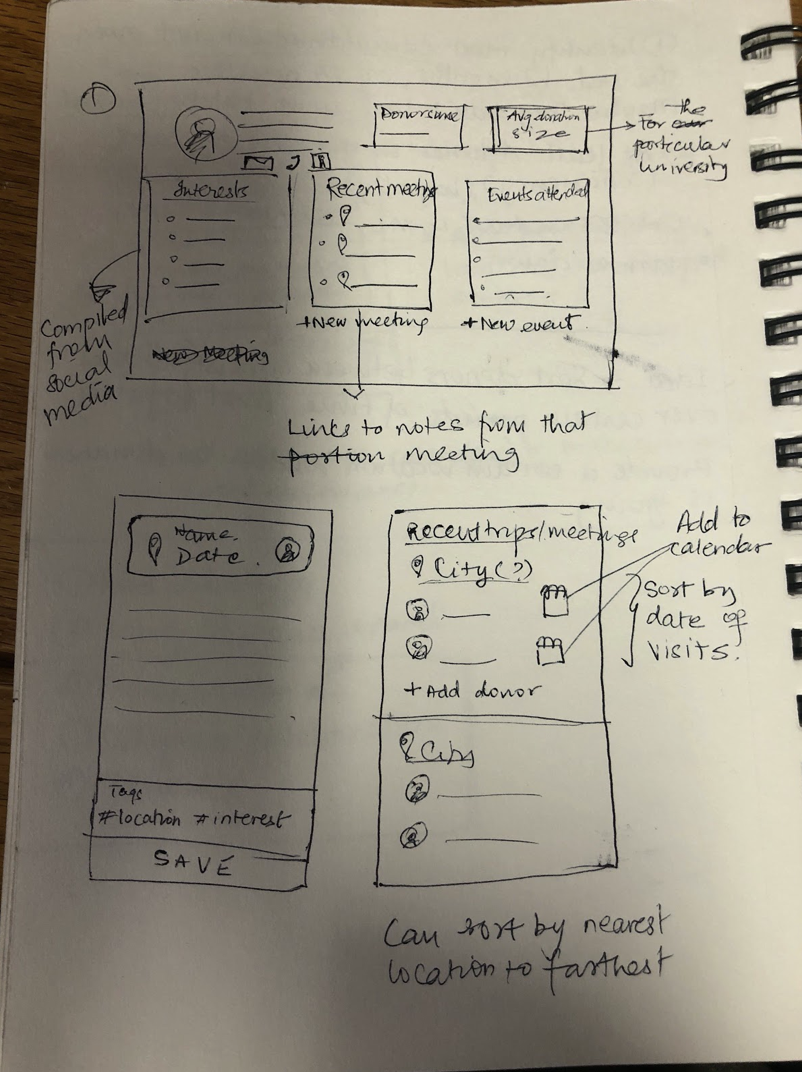 1
Donor since
Avg donation
size
The
For
particular
university
Interests
Recent meeting
Events attended
+New meeting
+ New event
Compiled
from
social
media
New Meeting
Links to notes from that
portion meeting
Name
Date
Tags
#location #interest
SAVE
Recent trips/meetings
City(?)
+ Add donor
City
Add to
calendar
Sort by
date of
visits.
Can sort by nearest
location to farthest